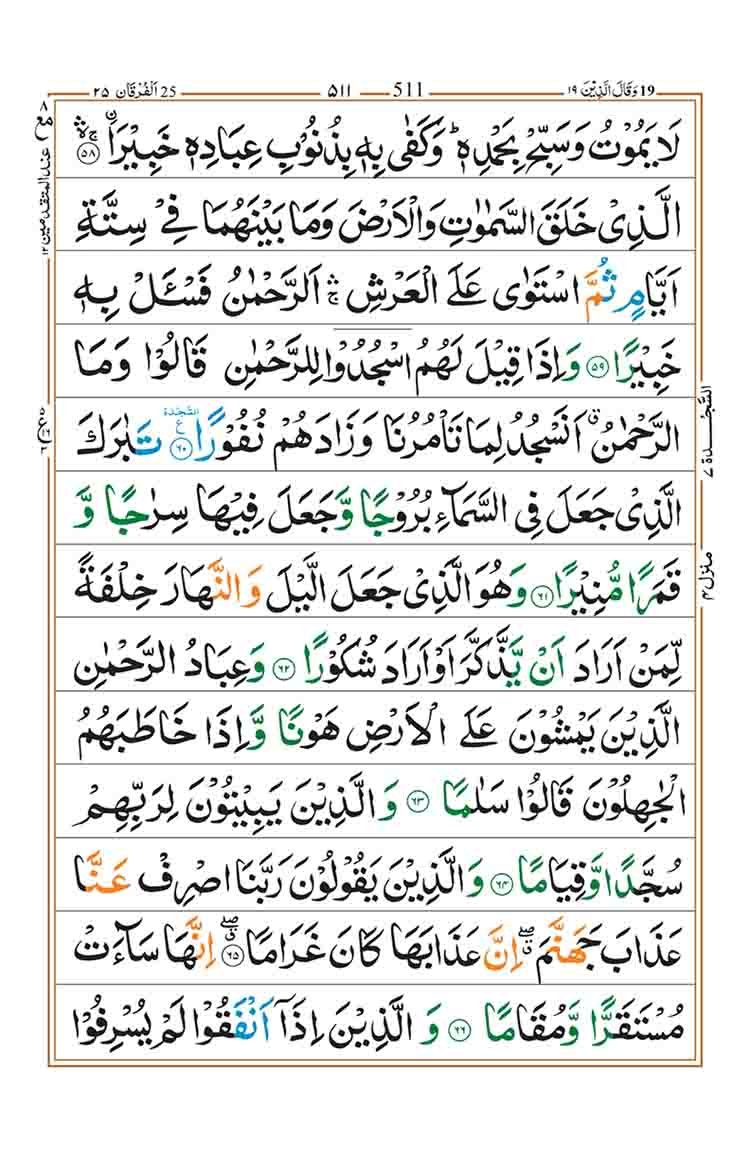 19 وَقَالَ الَّذِيْنَ ١٩ 511 ۵۱۱ 25 اَلْفُرْقَان ٢٥
لَا يَمُوْتُ وَسَبِّحْ بِحَمْدِهٖ ؕ وَكَفٰى بِهٖ بِذُنُوْبِ عِبَادِهٖ خَبِيْرَا ۛ ۚ ۙ ﴿٥٨﴾
الَّذِىْ خَلَقَ السَّمٰوٰتِ وَالْاَرْضَ وَمَا بَيْنَهُمَا فِىْ سِتَّةِ
اَيَّامٍ ثُمَّ اسْتَوٰى عَلَى الْعَرْشِ ۛ ۚ اَلرَّحْمٰنُ فَسْـَٔلْ بِهٖ
خَبِيْرًا ﴿٥٩﴾ وَاِذَا قِيْلَ لَهُمُ اسْجُدُوْا لِلرَّحْمٰنِ قَالُوْا وَمَا
الرَّحْمٰنُ ۗ اَنَسْجُدُ لِمَا تَاْمُرُنَا وَزَادَهُمْ نُفُوْرًا ﴿٦٠﴾ السَّجْدَة ع تَبٰرَكَ
الَّذِىْ جَعَلَ فِى السَّمَآءِ بُرُوْجًا وَّجَعَلَ فِيْهَا سِرٰجًا وَّ
قَمَرًا مُّنِيْرًا ﴿٦١﴾ وَهُوَ الَّذِىْ جَعَلَ الَّيْلَ وَالنَّهَارَ خِلْفَةً
لِّمَنْ اَرَادَ اَنْ يَّذَّكَّرَ اَوْ اَرَادَ شُكُوْرًا ﴿٦٢﴾ وَعِبَادُ الرَّحْمٰنِ
الَّذِيْنَ يَمْشُوْنَ عَلَى الْاَرْضِ هَوْنًا وَّاِذَا خَاطَبَهُمُ
الْجٰهِلُوْنَ قَالُوْا سَلٰمًا ﴿٦٣﴾ وَالَّذِيْنَ يَبِيْتُوْنَ لِرَبِّهِمْ
سُجَّدًا وَّقِيَامًا ﴿٦٤﴾ وَالَّذِيْنَ يَقُوْلُوْنَ رَبَّنَا اصْرِفْ عَنَّا
عَذَابَ جَهَنَّمَ ۖ ۗ اِنَّ عَذَابَهَا كَانَ غَرَامًا ۖ ۗ ﴿٦٥﴾ اِنَّهَا سَآءَتْ
مُسْتَقَرًّا وَّمُقَامًا ﴿٦٦﴾ وَالَّذِيْنَ اِذَاۤ اَنْفَقُوْا لَمْ يُسْرِفُوْا
٨
مع
عند المتقدمين ١٢
السَّجْدَة ٧
منزل ٤